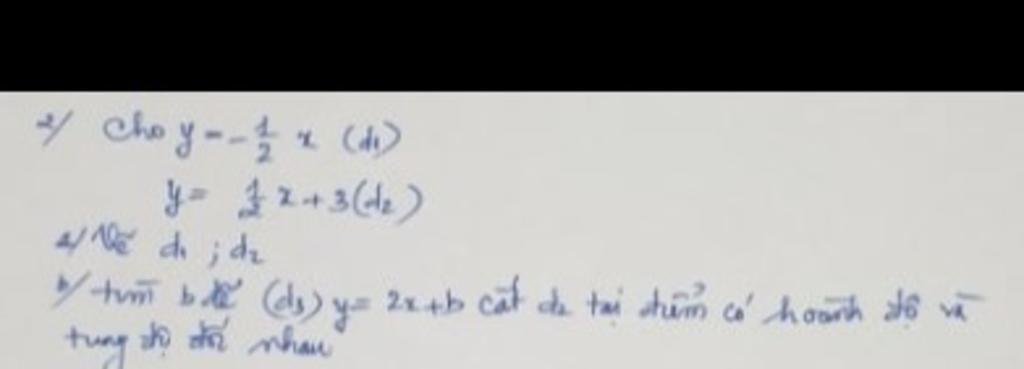 2/ Cho y = -1/2 x (d1)
y = 1/2 x + 3 (d2)
a/ Vẽ d1 ; d2
b/ tìm b để (d3) y = 2x + b cắt d2 tại điểm có hoành độ và
tung độ đối nhau